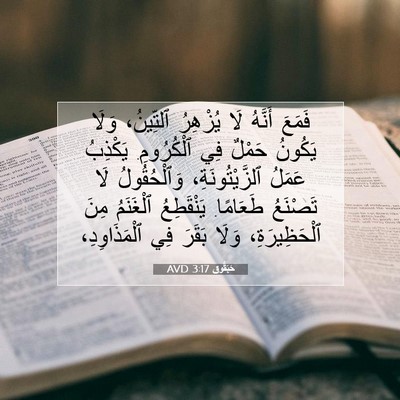 فَمَعَ أَنَّهُ لَا يُزْهِرُ ٱلتِّينُ، وَلَا
يَكُونُ حَمْلٌ فِي ٱلْكُرُومِ. يَكْذِبُ
عَمَلُ ٱلزَّيْتُونَةِ، وَٱلْحُقُولُ لَا
تَصْنَعُ طَعَامًا. يَنْقَطِعُ ٱلْغَنَمُ مِنَ
ٱلْحَظِيرَةِ، وَلَا بَقَرَ فِي ٱلْمَذَاوِدِ،
حَبَقُّوق 3:17 AVD